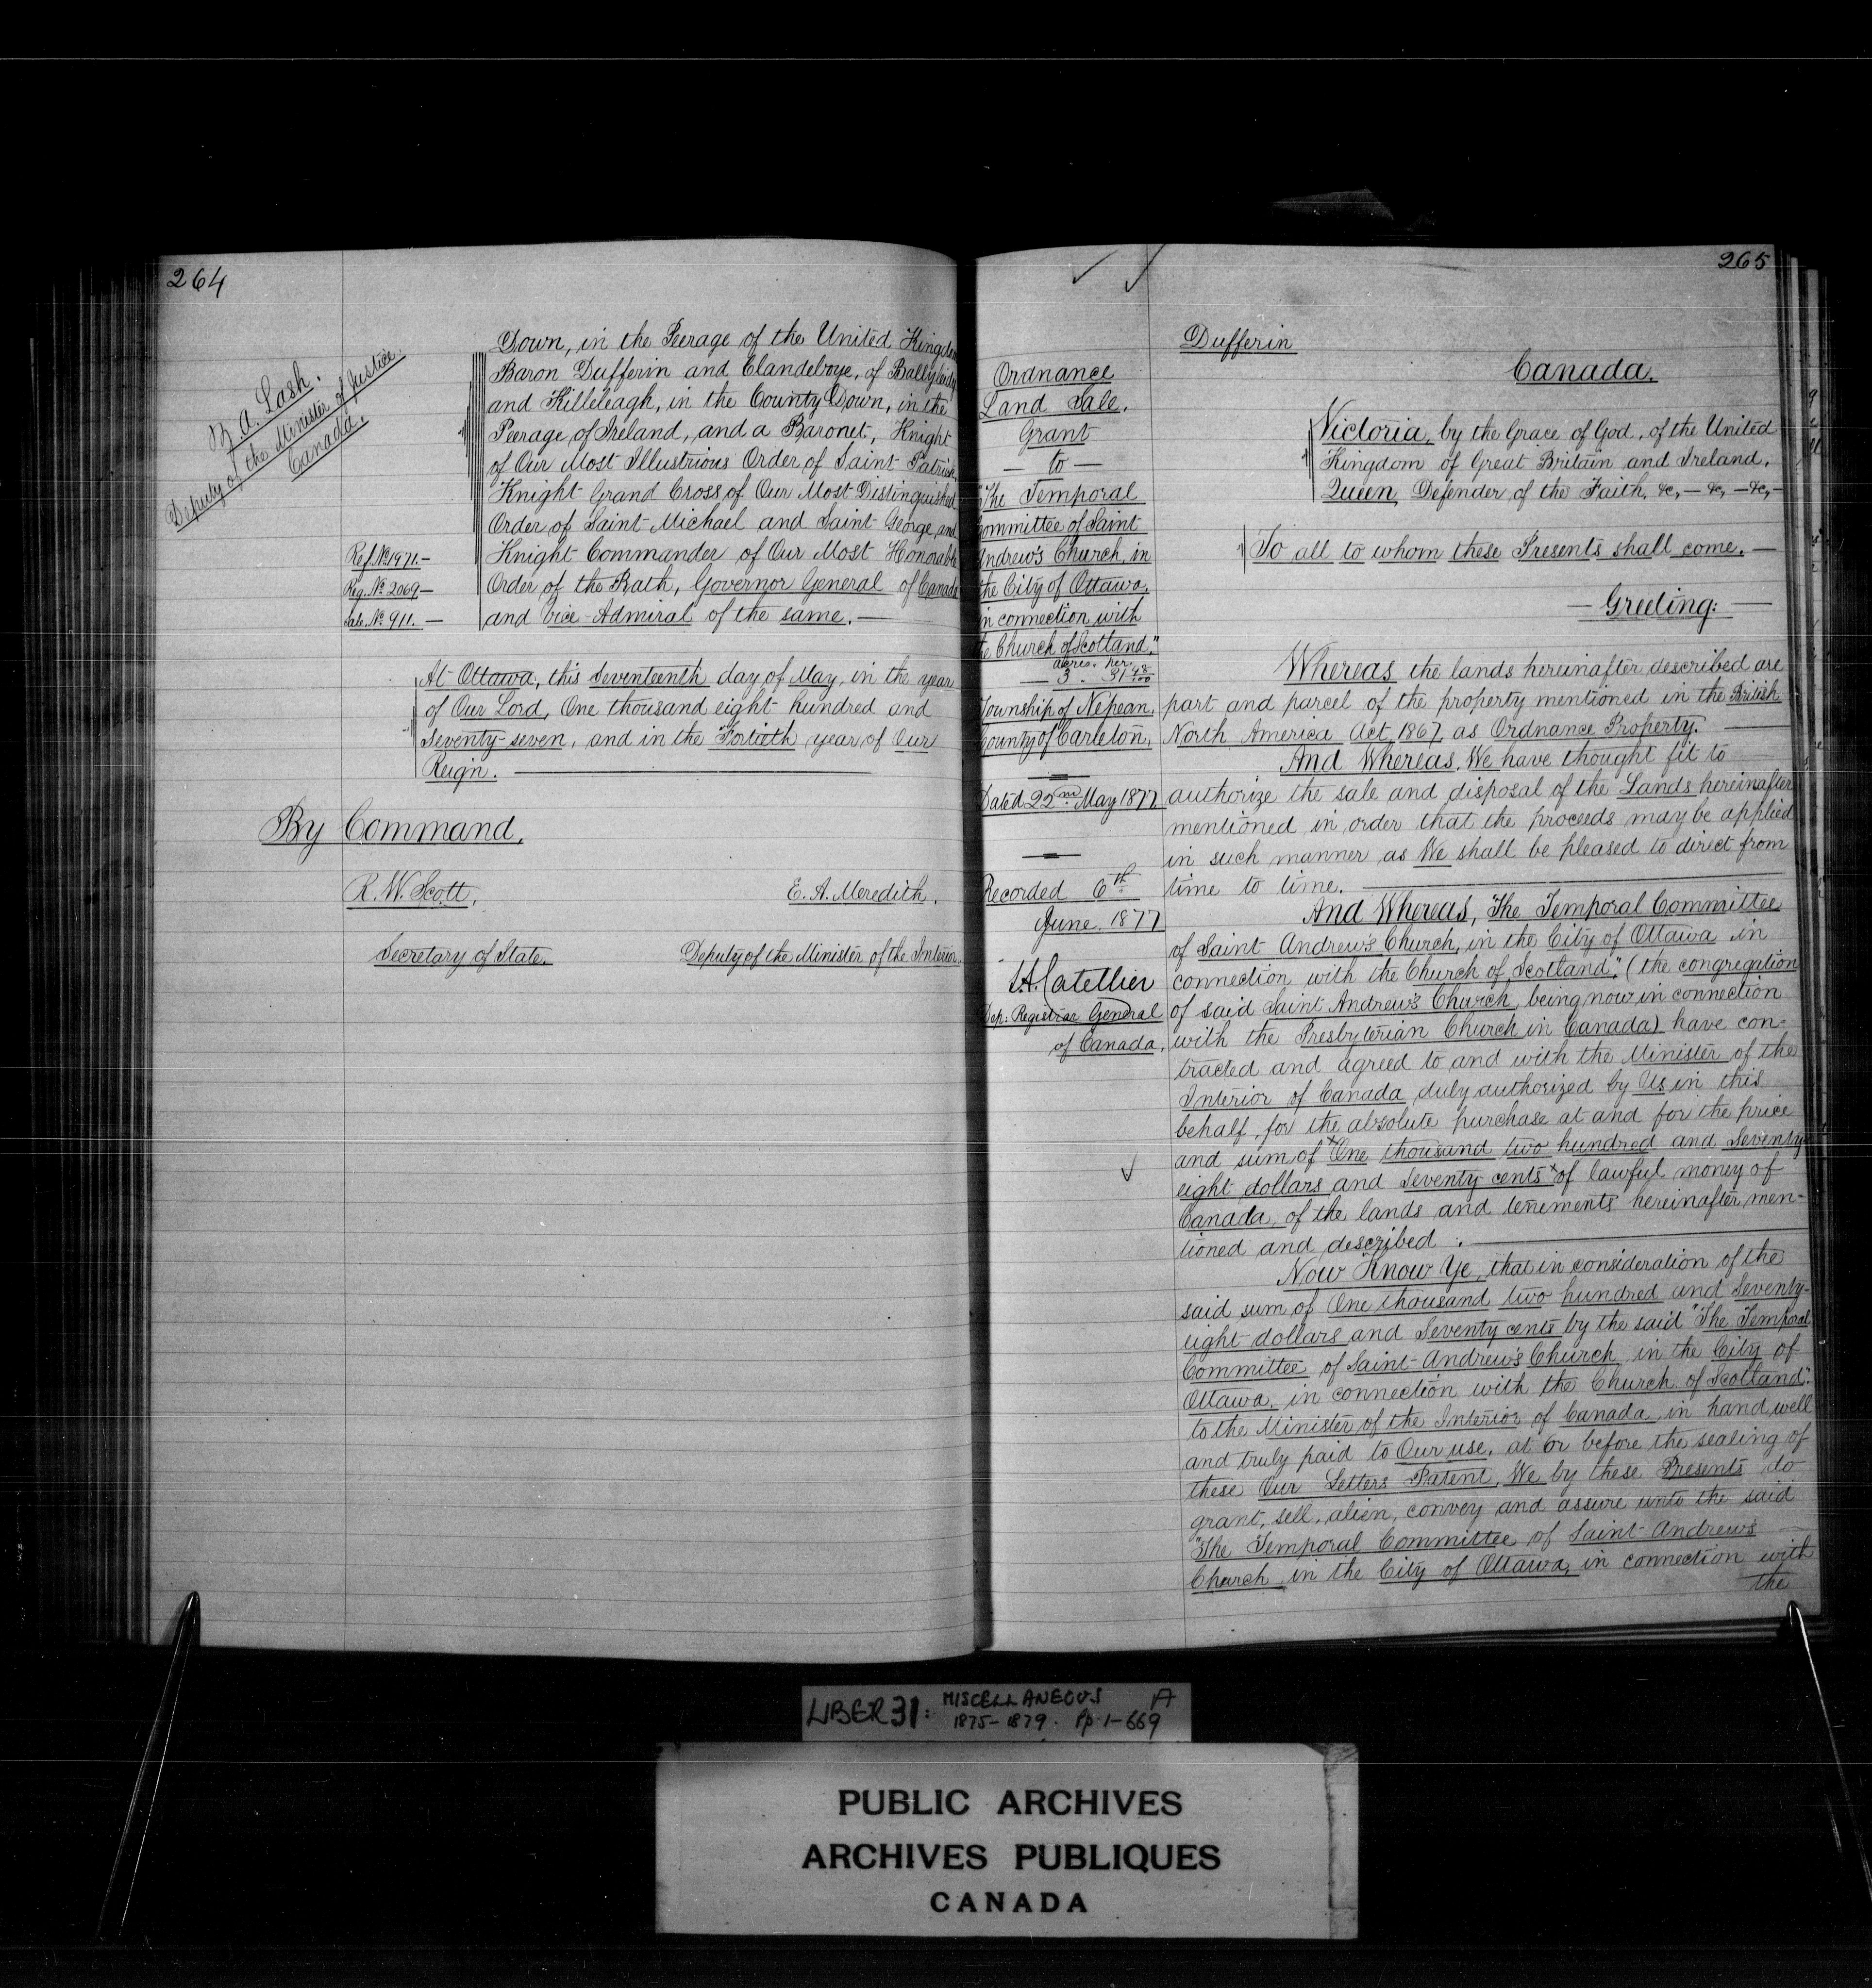 264
Z. A. Lash.
Deputy of the Minister of Justice.
Canada.
Down, in the Peerage of the United Kingdom
Baron Dufferin and Clandeboye, of Ballyleidy
and Killeleagh, in the County Down, in the
Peerage of Ireland, and a Baronet, Knight
of Our Most Illustrious Order of Saint Patrick,
Knight Grand Cross of Our Most Distinguished
Order of Saint Michael and Saint George, and
Knight Commander of Our Most Honorable
Order of the Bath, Governor General of Canada
and Vice-Admiral of the same. —
Ref. No. 1971. —
Reg. No. 2069 —
Sale. No. 911. —
At Ottawa, this Seventeenth day of May, in the year
of Our Lord, One thousand eight hundred and
Seventy-seven, and in the Fortieth year of Our
Reign. —
By Command,
R. W. Scott,
E. A. Meredith.
Secretary of State.
Deputy of the Minister of the Interior.
265
Ordnance
Land Sale.
Grant
— to —
"The Temporal
Committee of Saint
Andrew's Church, in
the City of Ottawa,
in connection with
the Church of Scotland."
acres. per.
3. 31 48/100
Township of Nepean,
County of Carleton,
Dated 22nd May 1877
Recorded 6th
June. 1877
L. A. Catellier
Dep: Registrar General
of Canada.
Dufferin
Canada.
Victoria, by the Grace of God, of the United
Kingdom of Great Britain and Ireland,
Queen, Defender of the Faith, &c, — &c, — &c, —
To all to whom these Presents shall come. —
— Greeting: —
Whereas the lands hereinafter described are
part and parcel of the property mentioned in the British
North America Act, 1867, as Ordnance Property. —
And Whereas, We have thought fit to
authorize the sale and disposal of the Lands hereinafter
mentioned in order that the proceeds may be applied
in such manner as We shall be pleased to direct from
time to time. —
And Whereas, "The Temporal Committee
of Saint Andrew's Church, in the City of Ottawa in
connection with the Church of Scotland," (the congregation
of said Saint Andrew's Church being now in connection
with the Presbyterian Church in Canada) have con-
tracted and agreed to and with the Minister of the
Interior of Canada duly authorized by Us in this
behalf, for the absolute purchase at and for the price
and sum of x One thousand two hundred and Seventy
eight dollars and Seventy cents x of lawful money of
Canada, of the lands and tenements hereinafter men-
tioned and described. —
Now Know Ye, that in consideration of the
said sum of One thousand two hundred and Seventy-
eight dollars and Seventy cents by the said "The Temporal
Committee of Saint-Andrew's Church in the City of
Ottawa, in connection with the Church of Scotland."
to the Minister of the Interior of Canada, in hand well
and truly paid to Our use, at or before the sealing of
these Our Letters Patent, We by these Presents do
grant, sell, alien, convey and assure unto the said
"The Temporal Committee of Saint-Andrew's
Church in the City of Ottawa, in connection with
the
LIBER 31: MISCELLANEOUS A
1875-1879. Pp. 1-669
PUBLIC ARCHIVES
ARCHIVES PUBLIQUES
CANADA